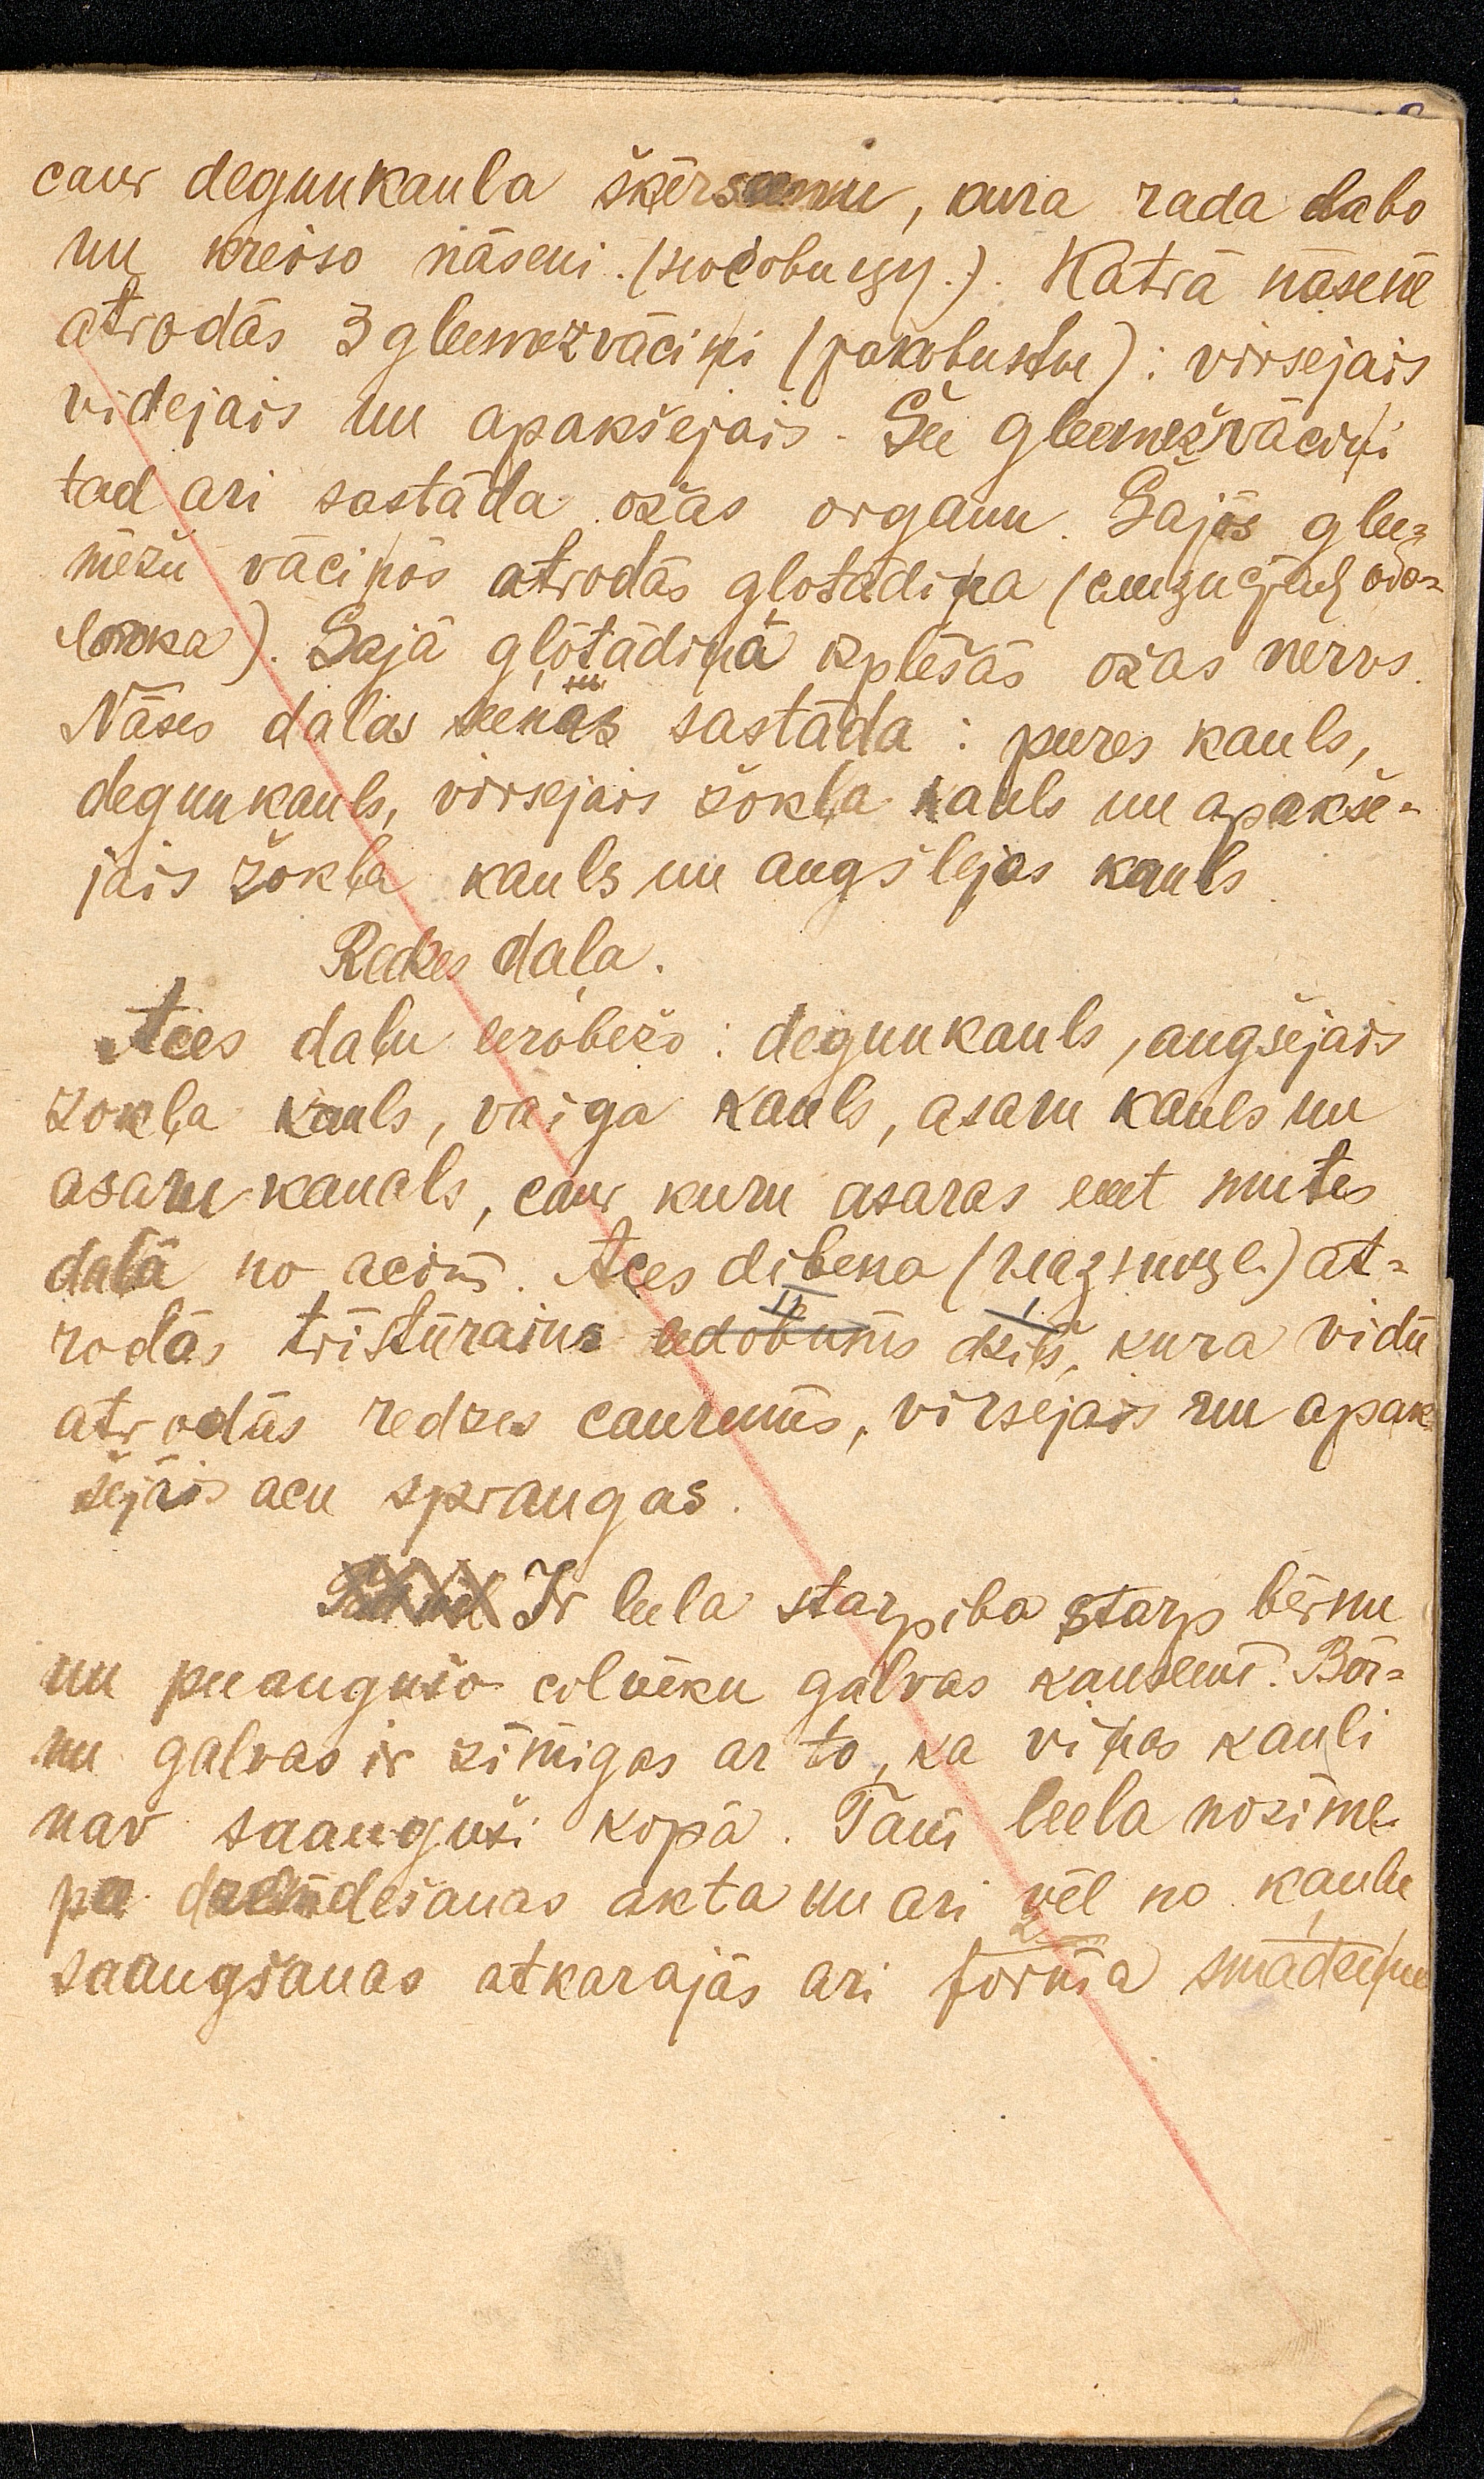 caur degunkaula šķērseenu, kura rada labo
un kreiso nāseni. (носовыху.). Katrā nāsenē
atrodās 3 gleemezvāciņi (раковистые): virsejais
videjais un apakšejais. Šee gleemežvāciņi
tad ari sastāda ožas organu. Šajōs glee=
mežu vāciņōs atrodās glotādiņa (слизистая обо=
лочка). Šajā glōtādiņā izplešās ožas nervs.
Nāses daļas seenas sastāda: peeres kauls,
degunkauls, virsejais žokļa kauls un apakše-
jais žokļa kauls un augšlejas kauls.
Redzes daļa.
Aces daļu eerobežo: degunkauls, augšejais
žokļa kauls, vaiga kauls, asaru kauls un
asaru kanals, caur kuru asaras eet mutes
daļā no acim. Aces dibena (глазницы) at=
rodās trīsstūrains eedobums dziļš, kura vidū
atrodās redzes caurums, virsejais un apak
šejais acu spraugas.
Ir leela starpiba starp bērnu
un peaugušo cilvēku galvas kauseem. Bēr=
nu galvas ir zīmigas ar to, ka viņas kauli
nav saauguši kopā. Tam leela nozīme
pee dzemdešanas akta un ari vēl no kaulu
saaugšanas atkarajās ari forma smadzeņu